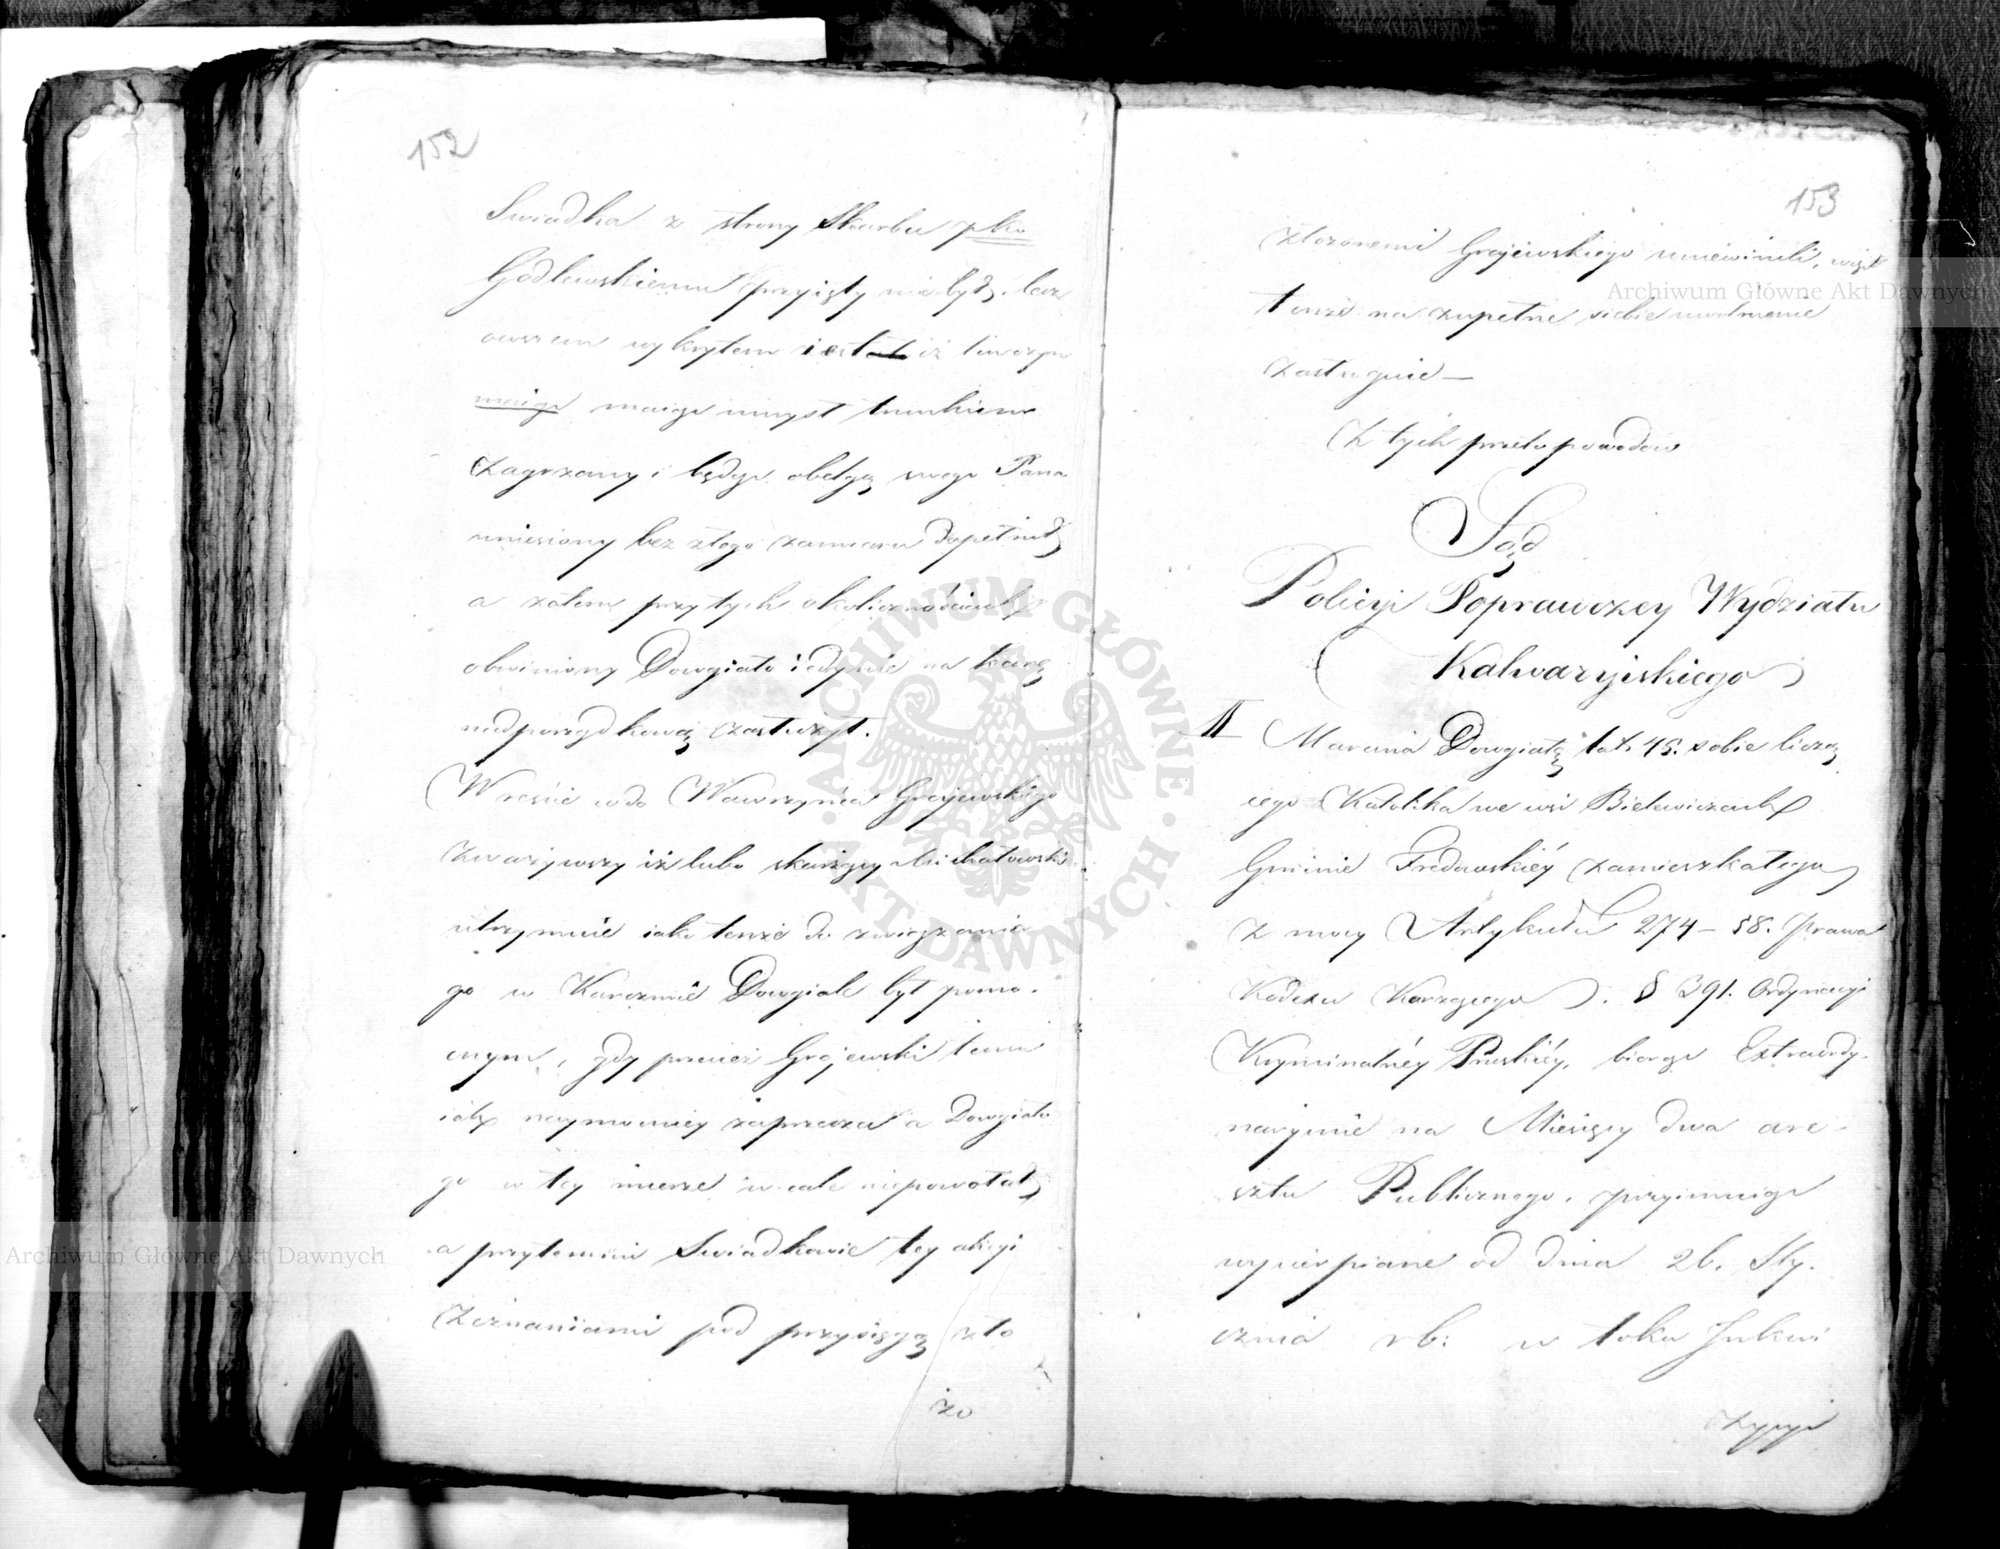 152
Swiadka z strony Skarbu pko
Godlewskiemu przyięty nie był, lecz
owszem wykrytem iest iż tenczyn
maiąc maiąc umysł trunkiem
zagrzany i będąc obelgą swego Pana
uniesiony bez złego zamiaru dopełnił
a zatem przy tych okolicznościach
obwiniony Dowgiało iedynie na karę
nadporządkową zasłużył.
Wreście w do Wawrzyńca Grajewskiego
zważywszy iż lubo skarżący Michałowski
utrzymuie iako tenże do związania
go w Karczmie Dowgiale był pomo.
cnym, gdy przecież Grajewski temu
iak naymocniey zaprzecza a Dowgiało
go w tey mierze wcale niepowołał
a przytomni Swiadkowie tey akcyi
Zeznaniami pod przysięgą zło
żo
153
złożonemi Grajewskiego uniewinili, więc
tenże na zupełne siebie uwolnienie
zasługuie —
Z tych przeto powodów
Sąd
Policyi Poprawczey Wydziału
Kalwaryiskiego
II Marcina Dowgiałę lat 45. sobie liczą
cego Katolika we wsi Bielewiczach
Gminie Fredowskiéy zamieszkałego
Z mocy Artykułu 274 - 58. Prawa
Kodexu Karzącego. § 391. Ordynacyi
Kryminalnéy Pruskiéy, biorąc Extraordy.
naryinie na Miesięcy dwa are-
sztu Publicznego, przyimuiąc
wycierpiane od dnia 26. Sty.
cznia rb: w toku Inkwi
zycyi
Archiwum Główne Akt Dawnych
Archiwum Główne Akt Dawnych
ARCHIWUM GŁÓWNE · AKT DAWNYCH ·